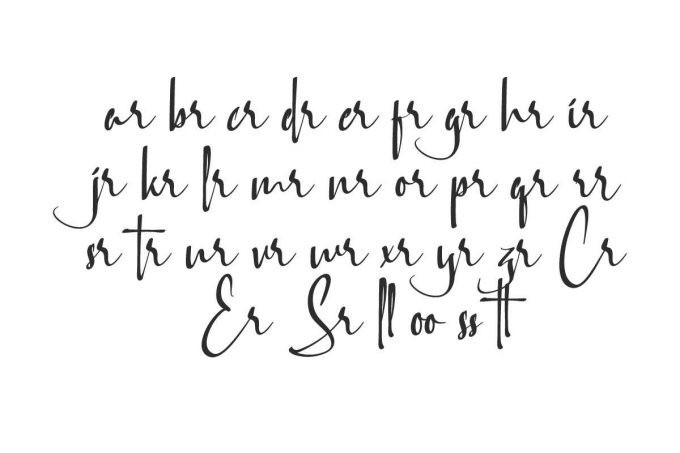 ar br cr dr er fr gr hr ir
jr kr lr mr nr or pr qr rr
sr tr ur vr wr xr yr zr Cr
Er Sr ll oo ss tt